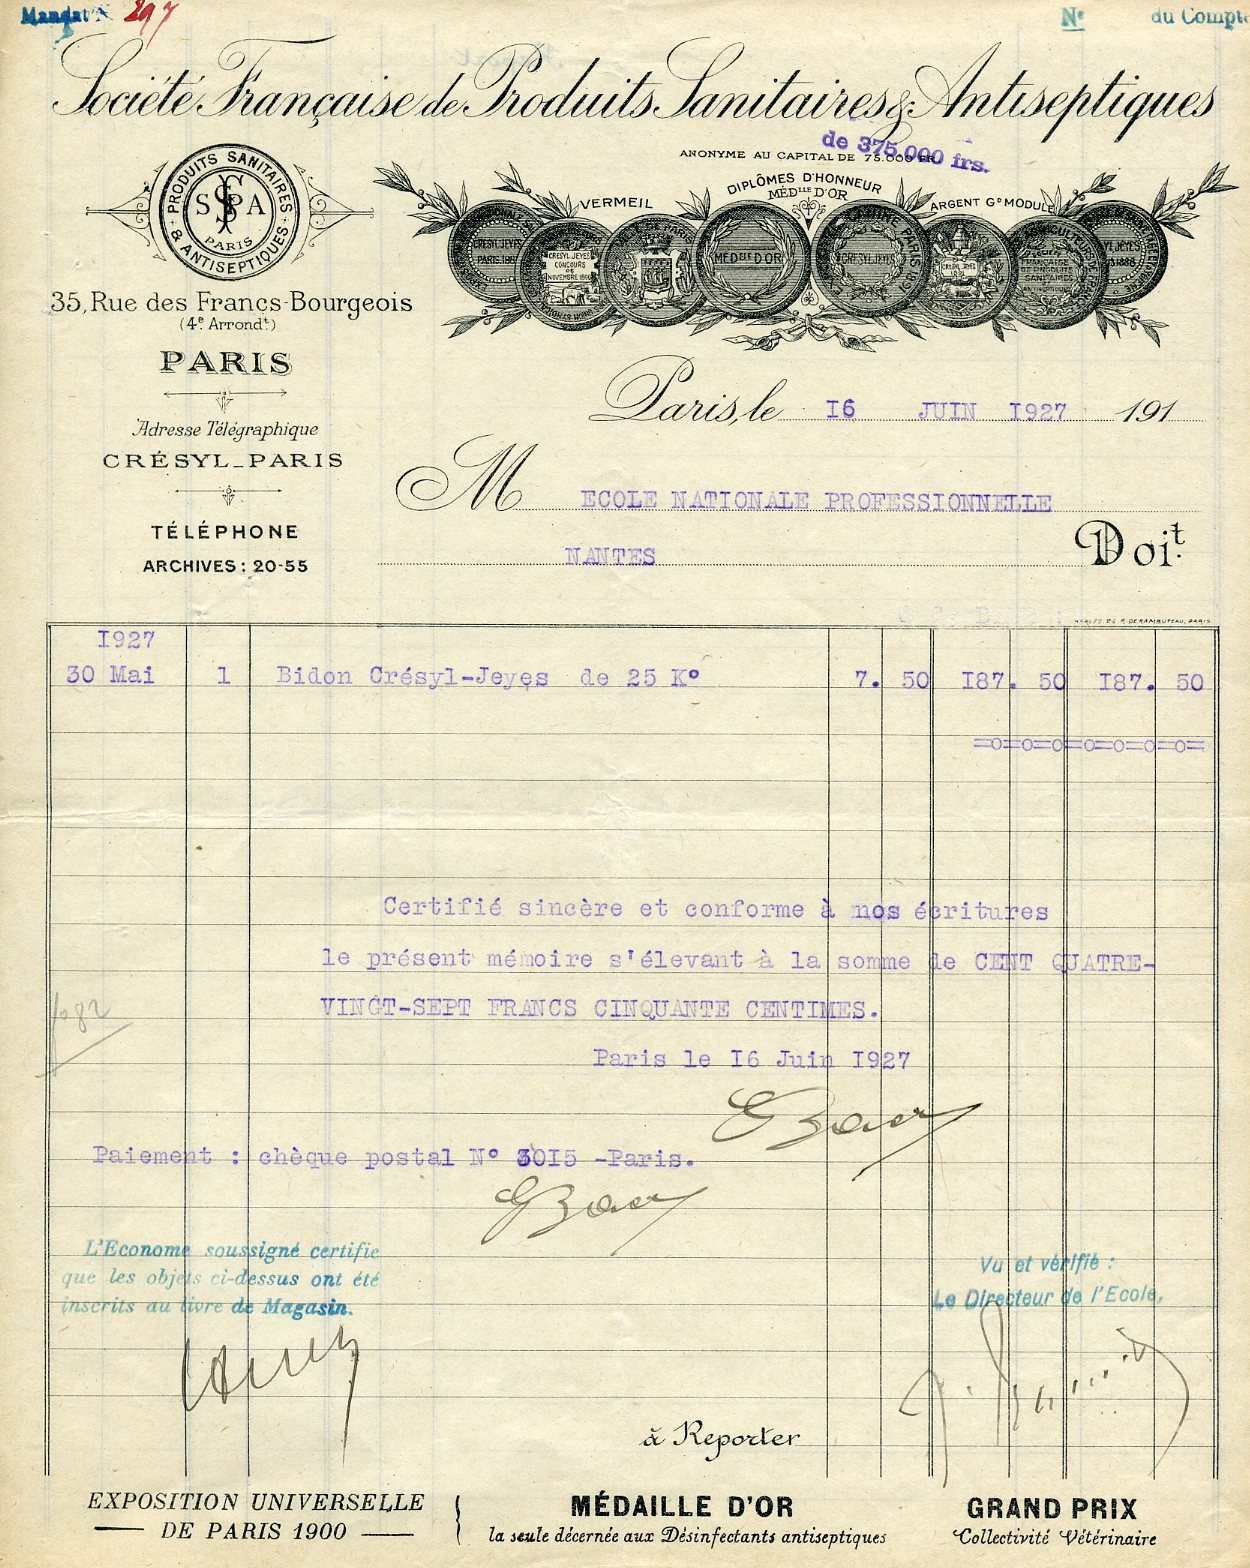 Mandat N. 297
N° du Compte
Société Française de Produits Sanitaires & Antiseptiques
ANONYME AU CAPITAL DE 75.000 FR.
de 375.000 frs.
PRODUITS SANITAIRES & ANTISEPTIQUES
SPA
PARIS
VERMEIL
DIPLÔMES D'HONNEUR
MÉDlle D'OR
ARGENT Gd MODULE
CRÉSYL JEYES
CRÉSYL JEYES
CONCOURS
DE
NOVEMBRE
MÉDlle D'OR
CRÉSYL JEYES
35, Rue des Francs-Bourgeois
(4e Arrondt)
PARIS
Adresse Télégraphique
CRÉSYL-PARIS
TÉLÉPHONE
ARCHIVES : 20-55
Paris, le 16 JUIN 1927 191
M ECOLE NATIONALE PROFESSIONNELLE
NANTES Doit
R. DE RAMBUTEAU, PARIS
1927
30 Mai 1 Bidon Crésyl-Jeyes de 25 K° 7. 50 187. 50 187. 50
=o=o=o=o=o=o=o=
Certifié sincère et conforme à nos écritures
le présent mémoire s'élevant à la somme de CENT QUATRE-
VINGT-SEPT FRANCS CINQUANTE CENTIMES.
1082
Paris le 16 Juin 1927
Paiement : chèque postal N° 3015 -Paris.
L'Econome soussigné certifie
que les objets ci-dessus ont été
inscrits au livre de Magasin.
Vu et vérifié :
Le Directeur de l'Ecole,
à Reporter
EXPOSITION UNIVERSELLE
DE PARIS 1900
MÉDAILLE D'OR
la seule décernée aux Désinfectants antiseptiques
GRAND PRIX
Collectivité Vétérinaire